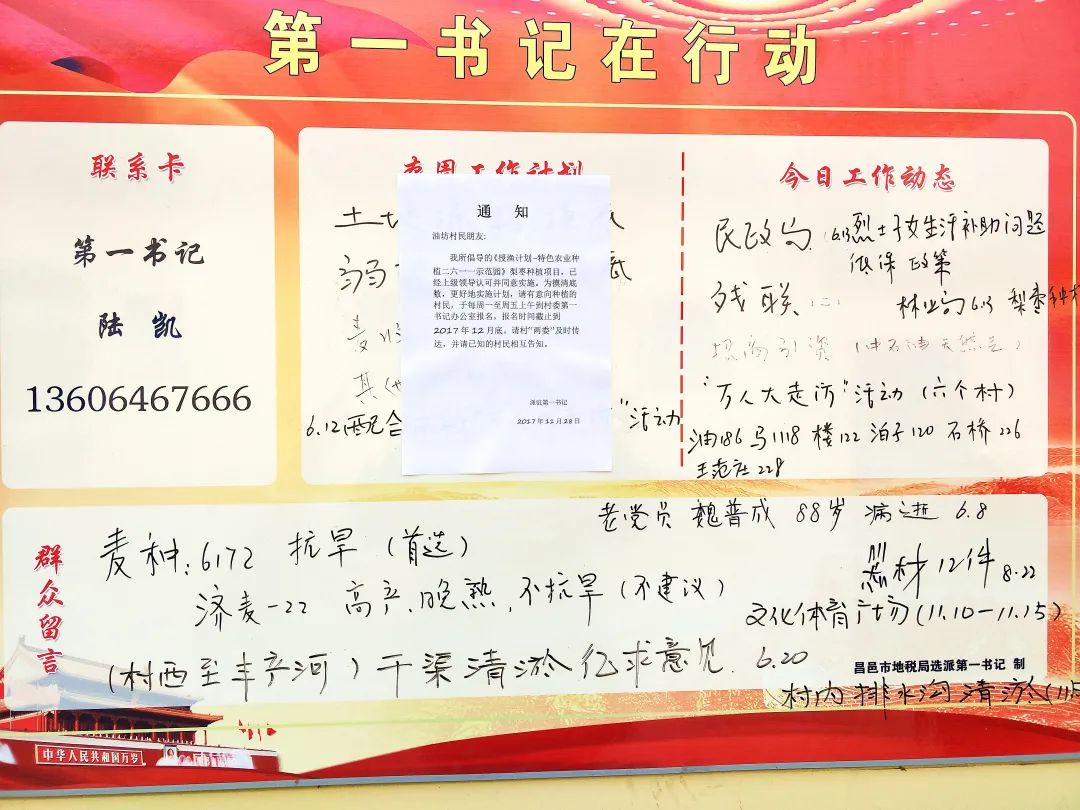 第一书记在行动
联系卡
第一书记
陆 凯
13606467666
工作计划
土
弱
麦
其
6.12配合
"活动
通 知
油坊村民朋友:
我所倡导的《授渔计划-特色农业种
植二六一一示范园》梨枣种植项目,已
经上级领导认可并同意实施。为摸清底
数,更好地实施计划,请有意向种植的
村民,于每周一至周五上午到村委第一
书记办公室报名,报名时间截止到
2017年12月底。请村"两委"及时传
达,并请已知的村民相互告知。
派驻第一书记
2017年11月28日
今日工作动态
民政局 6.13烈士子女生活补助问题
低保政策
残联(二) 林业局6.13 梨枣种植
招商引资(中石油天然气)
"万人大走访"活动(六个村)
油186 马1118 楼122 泊子120 石桥226
王范庄228
群众留言
老党员 魏普成 88岁 病逝 6.8
麦种:6172 抗旱(首选)
济麦-22 高产、晚熟、不抗旱(不建议)
器材12件 8.22
文化体育广场(11.10-11.15)
(村西至丰产河)干渠清淤征求意见. 6.20
昌邑市地税局选派第一书记 制
村内排水沟清淤(11.15
中华人民共和国万岁